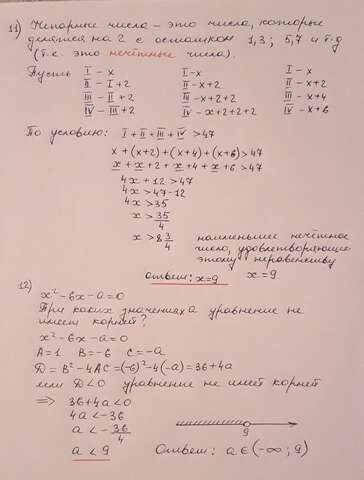 11) Непарные числа – это числа, которые
делятся на 2 с остатком 1,3; 5,7 и т.д
(т.е. это нечётные числа).
Пусть I - x I - x I - x
II - I+2 II - x+2 II - x+2
III - II+2 III - x+2+2 III - x+4
IV - III+2 IV - x+2+2+2 IV - x+6
По условию: I + II + III + IV > 47
x + (x+2) + (x+4) + (x+6) > 47
x + x + 2 + x + 4 + x + 6 > 47
4x + 12 > 47
4x > 47 - 12
4x > 35
x > 35/4
x > 8 3/4 наименьшее нечётное
число, удовлетворяющее
этому неравенству
Ответ: x = 9 x = 9.
12) x² - 6x - a = 0
При каких значениях a уравнение не
имеет корней?
x² - 6x - a = 0
A = 1 B = -6 C = -a
D = B² - 4AC = (-6)² - 4(-a) = 36 + 4a
если D < 0 уравнение не имеет корней
=> 36 + 4a < 0
4a < -36
a < - 36/4
a < 9 9 Ответ: a ∈ (-∞; 9)